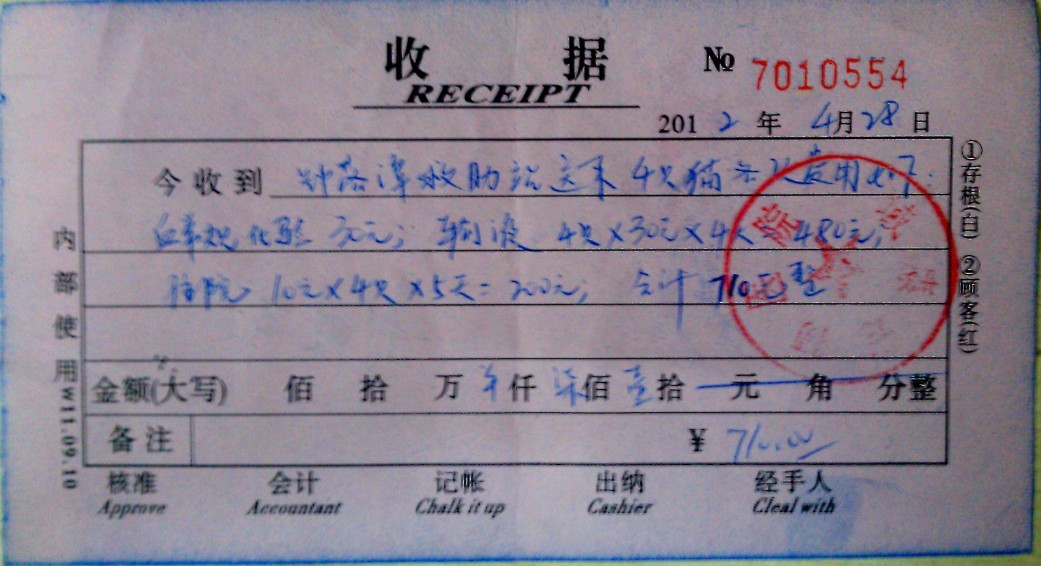 收 据 № 7010554
RECEIPT
2012年 4月28日
今收到 钟落潭救助站送来4只猫 费用如下:
血常规化验30元; 输液 4只×30元×4天=480元;
住院 10元×4只×5天=200元; 合计710元整
金额(大写) 佰 拾 万 仟 柒佰 壹拾 元 角 分整
备注 ¥ 710.00
核准 会计 记帐 出纳 经手人
Approve Accountant Chalk it up Cashier Cleal with
内部使用
W11.09.10
①存根(白) ②顾客(红)